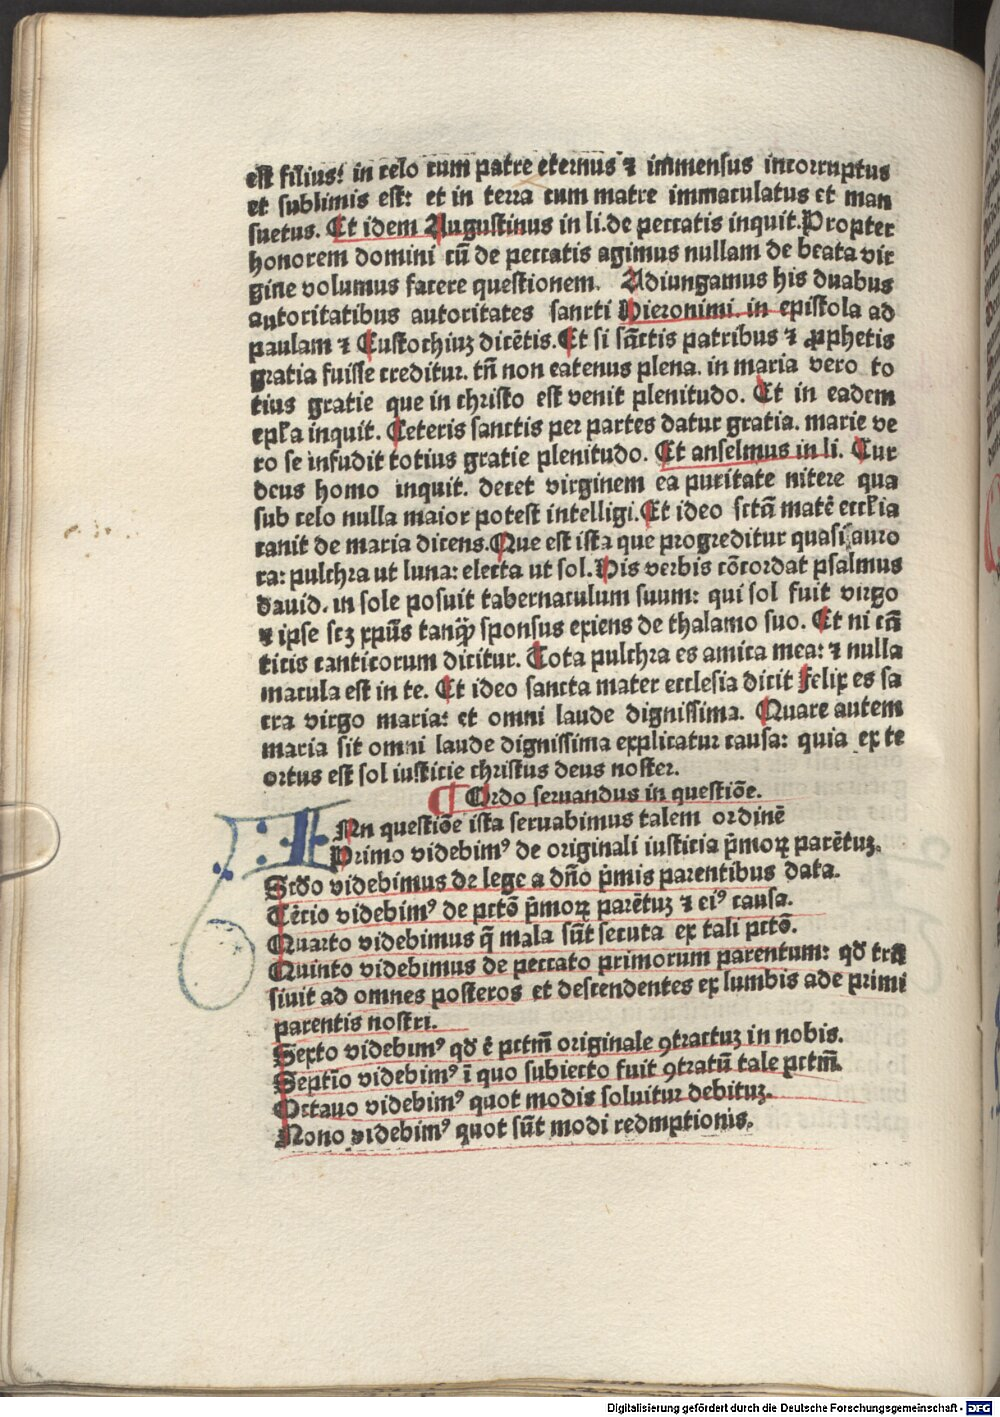 est filius: in celo cum patre eternus ⁊ immensus incorruptus
et sublimis est: et in terra cum matre immaculatus et man
suetus. Et idem Augustinus in li. de peccatis inquit. Propter
honorem domini cũ de peccatis agimus nullam de beata vir
gine volumus facere questionem. Adiungamus his duabus
autoritatibus autoritates sancti Hieronimi. in epistola ad
paulam ⁊ Eustochiuꝫ dicẽtis. Et si sãctis patribus ⁊ ꝓphetis
gratia fuisse creditur. tñ non eatenus plena. in maria vero to
tius gratie que in christo est venit plenitudo. Et in eadem
epl'a inquit. Ceteris sanctis per partes datur gratia. marie ve
ro se infudit totius gratie plenitudo. Et anselmus in li. Cur
deus homo inquit. decet virginem ea puritate nitere qua
sub celo nulla maior potest intelligi. Et ideo sctã matẽ eccl'ia
canit de maria dicens. Que est ista que progreditur quasi auro
ra: pulchra ut luna: electa ut sol. His verbis cõcordat psalmus
dauid. in sole posuit tabernaculum suum: qui sol fuit virgo
⁊ ipse scꝫ xp̃us tanꝙ̃ sponsus exiens de thalamo suo. Et ni cã
ticis canticorum dicitur. Tota pulchra es amica mea: ⁊ nulla
macula est in te. Et ideo sancta mater ecclesia dicit Felix es sa
cra virgo maria: et omni laude dignissima. Quare autem
maria sit omni laude dignissima explicatur causa: quia ex te
ortus est sol iusticie christus deus noster.
¶ Ordo seruandus in questiõe.
I Nn questiõe ista seruabimus talem ordinẽ
Primo videbimꝰ de originali iusticia p̃moꝝ parẽtuꝫ.
Scd̃o videbimus de lege a dño p̃mis parentibus data.
Tẽrcio videbimꝰ de pctõ p̃moꝝ parẽtuꝫ ⁊ eiꝰ causa.
Quarto videbimus q̃ mala sũt secuta ex tali pctõ.
Quinto videbimus de peccato primorum parentum: qđ trã
siuit ad omnes posteros et descendentes ex lumbis ade primi
parentis nostri.
Sexto videbimꝰ qđ ẽ pctm̃ originale ꝯtractuꝫ in nobis.
Septĩo videbimꝰ ĩ quo subiecto fuit ꝯtratũ tale pctm̃.
Octauo videbimꝰ quot modis soluitur debituꝫ.
Nono videbimꝰ quot sũt modi redemptionis.
Digitalisierung gefördert durch die Deutsche Forschungsgemeinschaft - DFG